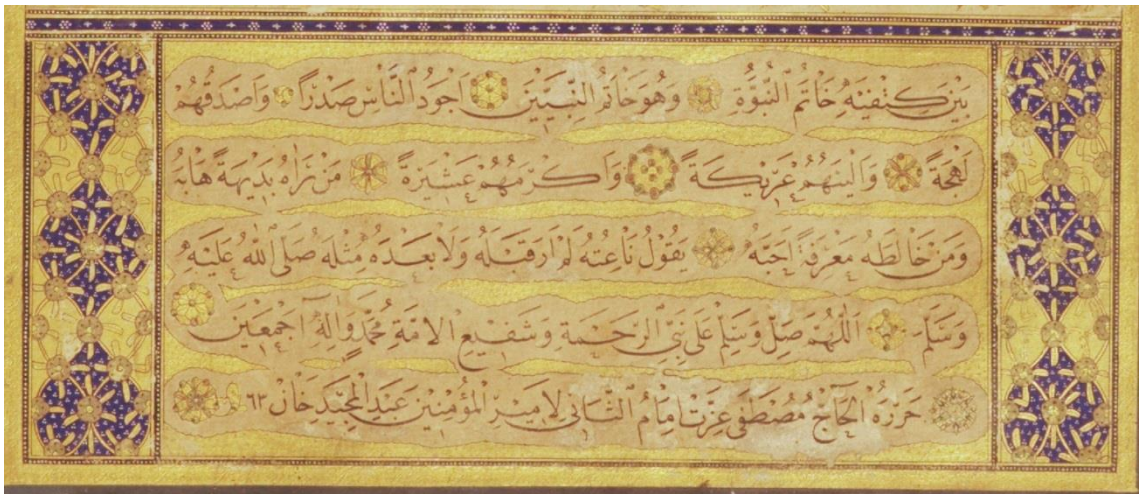 بَيْنَ كِتْفَيْهِ خَاتَمُ النُّبُوَّةِ وَهُوَ خَاتَمُ النَّبِيِّينَ اَجْوَدُ النَّاسِ صَدْرًا وَاَصْدَقُهُمْ
لَهْجَةً وَاَلْيَنُهُمْ عَرِيكَةً وَاَكْرَمُهُمْ عَشِيرَةً مَنْ رَاٰهُ بَدِيهَةً هَابَهُ
وَمَنْ خَالَطَهُ مَعْرِفَةً اَحَبَّهُ يَقُولُ نَاعِتُهُ لَمْ اَرَ قَبْلَهُ وَلَا بَعْدَهُ مِثْلَهُ صَلَّى اللّٰهُ عَلَيْهِ
وَسَلَّمَ اَللّٰهُمَّ صَلِّ وَسَلِّمْ عَلَى نَبِيِّ الرَّحْمَةِ وَشَفِيعِ الْاُمَّةِ مُحَمَّدٍ وَاٰلِهِ اَجْمَعِينَ
حَرَّرَهُ الْحَاجّ مُصْطَفَى عِزَّت اِمَامُ الثَّانِى لِاَمِيرِ الْمُؤْمِنِينَ عَبْدِ الْمَجِيدْ خَانْ ٦٢